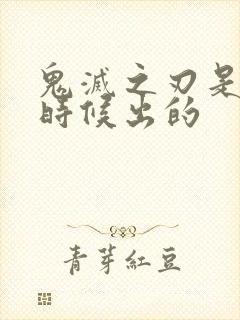 鬼滅之刃是
時候出的
青芽紅豆